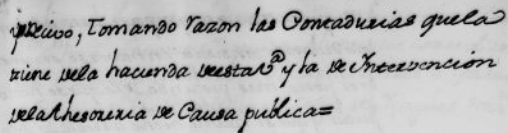 preciso, Tomando razon las Contadurias quela
tiene dela hacienda deesta Pª y la de Intervención
dela thesoreria de Causa publica=